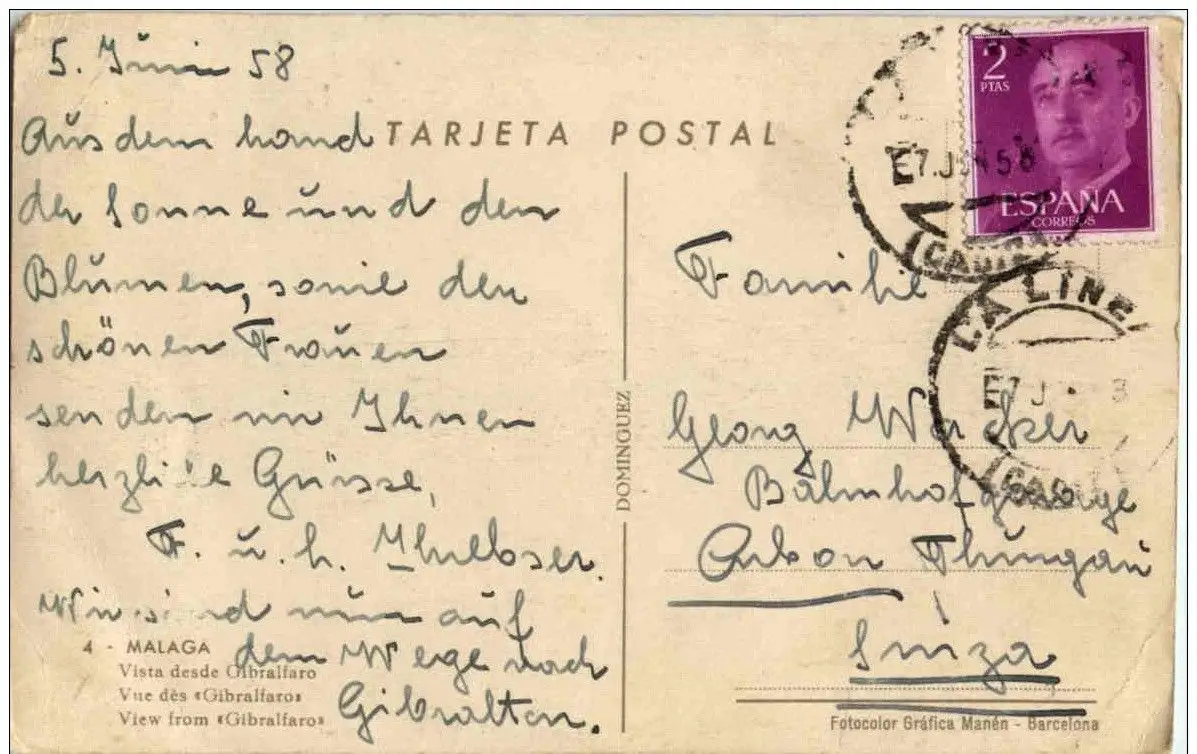 5. Juni 58
Aus dem Land
der Sonne und den
Blumen, sowie den
schönen Frauen
senden wir Ihnen
herzliche Grüsse,
F. u. h.
Wir sind nun auf
dem Wege nach
Gibraltar.
4 - MALAGA
Vista desde Gibralfaro
Vue dès «Gibralfaro»
View from «Gibralfaro»
TARJETA POSTAL
DOMINGUEZ
2
PTAS
ESPAÑA
CORREOS
E7.JUN 58
(CADIZ)
LA LINEA
E7 J
Familie
Georg Wacker
Bahnhofgarage
Arbon Thurgau
Suiza
Fotocolor Gráfica Manén - Barcelona